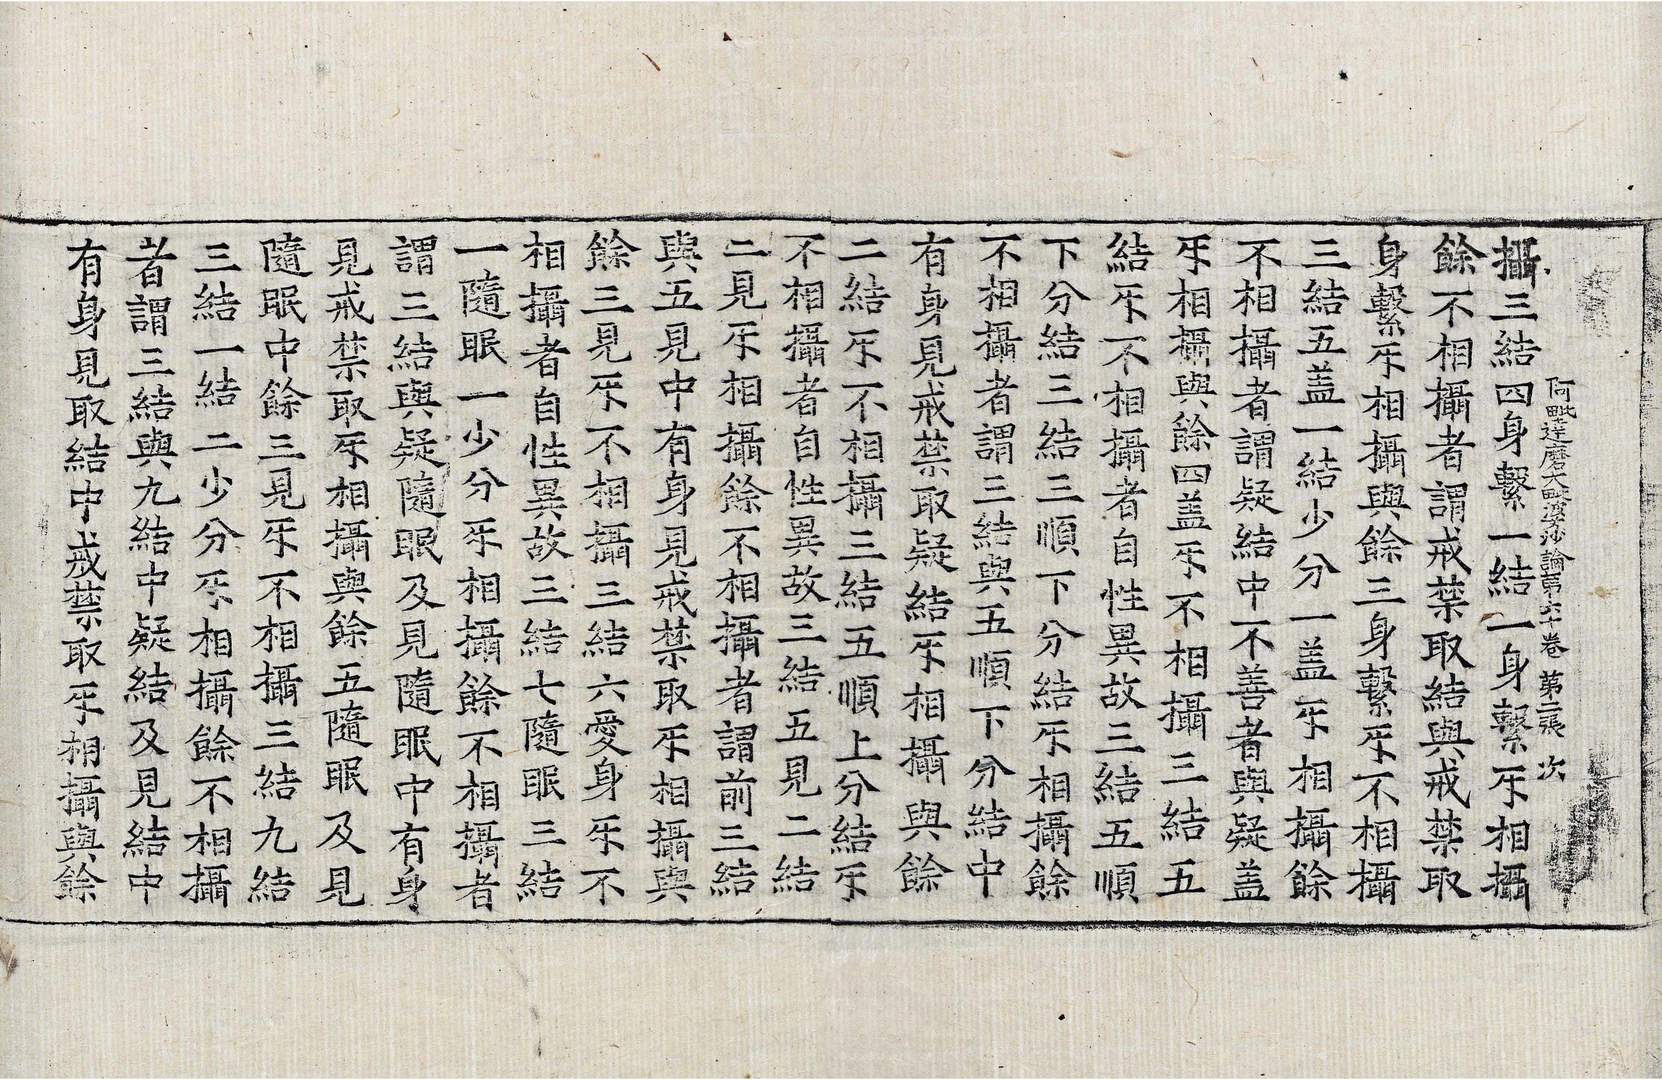 阿毗達磨大毗婆沙論第六十卷 第二張 次
攝三結四身繫一結一身繫㸦相攝
餘不相攝者謂戒禁取結與戒禁取
身繫㸦相攝與餘三身繫㸦不相攝
三結五盖一結少分一盖㸦相攝餘
不相攝者謂疑結中不善者與疑盖
㸦相攝與餘四盖㸦不相攝三結五
結㸦不相攝者自性異故三結五順
下分結三結三順下分結㸦相攝餘
不相攝者謂三結與五順下分結中
有身見戒禁取疑結㸦相攝與餘
二結㸦不相攝三結五順上分結㸦
不相攝者自性異故三結五見二結
二見㸦相攝餘不相攝者謂前三結
與五見中有身見戒禁取㸦相攝與
餘三見㸦不相攝三結六愛身㸦不
相攝者自性異故三結七隨眠三結
一隨眠一少分㸦相攝餘不相攝者
謂三結與疑隨眠及見隨眠中有身
見戒禁取㸦相攝與餘五隨眠及見
隨眠中餘三見㸦不相攝三結九結
三結一結二少分㸦相攝餘不相攝
者謂三結與九結中疑結及見結中
有身見取結中戒禁取㸦相攝與餘